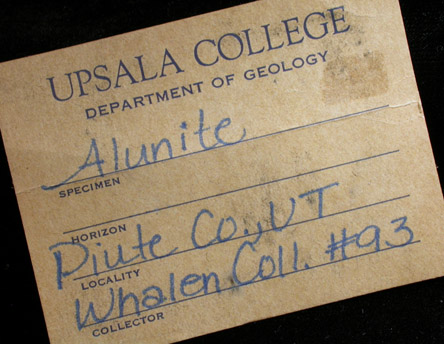 UPSALA COLLEGE
DEPARTMENT OF GEOLOGY
Alunite
SPECIMEN
HORIZON
Piute Co., UT
LOCALITY
Whalen Coll. #93
COLLECTOR